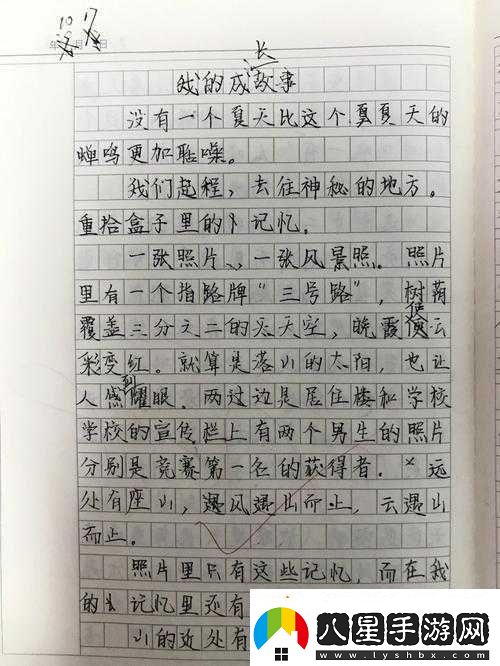 10 17
年 月 日
我的成长故事
没有一个夏天比这个夏夏天的
蝉鸣更加聒噪。
我们起程，去往神秘的地方。
重拾盒子里的记忆。
一张照片，一张风景照。照片
里有一个指路牌“三号路”，树荫
覆盖三分之二的天空，晚霞使云
彩变红。就算是落山的太阳，也让
人感到耀眼。两边是居住楼和学校
学校的宣传栏上有两个男生的照片
分别是竞赛第一名的获得者。远
处有座山，遇风遇山而止，云遇山
而止。
照片里只有这些记忆，而在我
的记忆里还有
山的近处有
八星手游网
www.lyshbx.com